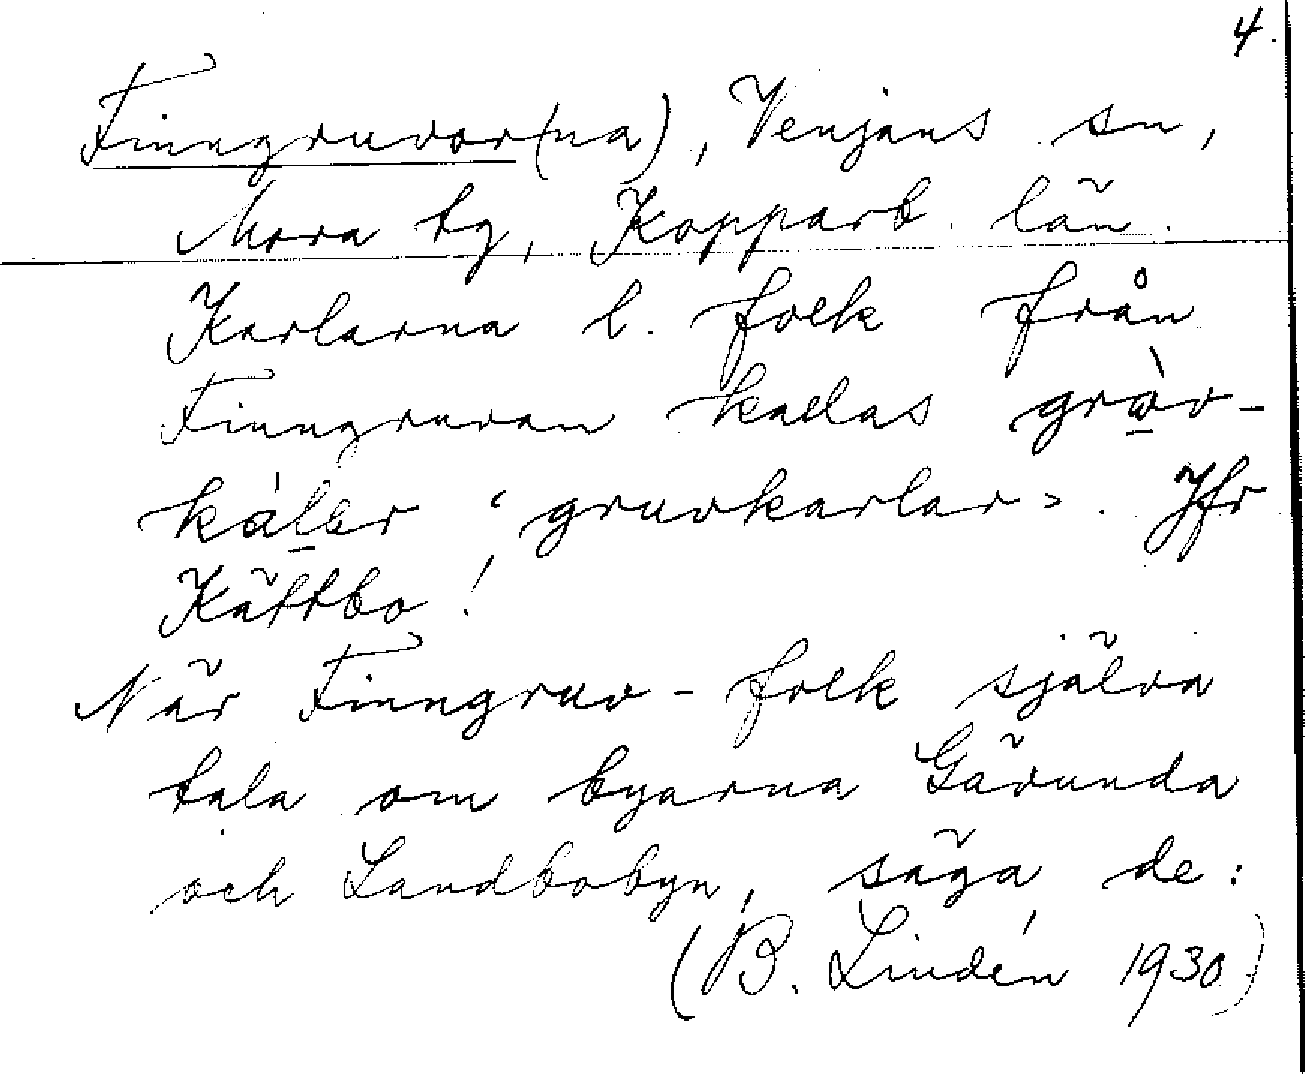 4.
Finngruvor(na), Venjans sn,
Mora tg, Kopparb. län.
Karlarna l. folk från
Finngruvan kallas gròv-
kálẹr ‘gruvkarlar’. Jfr
Kättbo!
När Finngruv-folk själva
tala om byarna Gävunda
och Landbobyn, säga de:
(B. Lindén 1930)